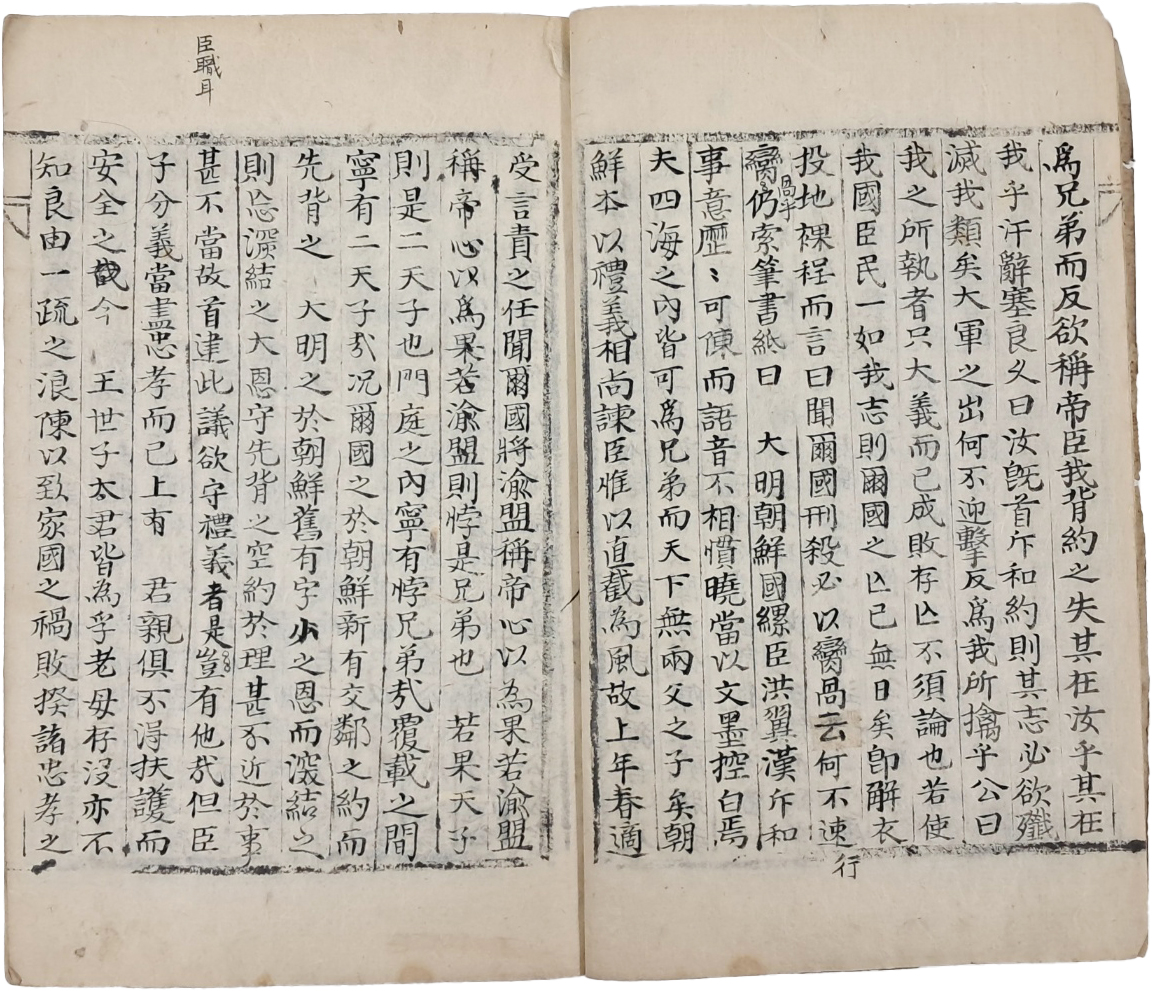 爲兄弟而反欲稱帝臣我背約之失其在汝乎其在
我乎汗辭塞良久曰汝旣首斥和約則其志必欲殲
滅我類矣大軍之出何不迎擊反爲我所擒乎公曰
我之所執者只大義而已成敗存亾不須論也若使
我國臣民一如我志則爾國之亾已無日矣卽解衣
投地裸程而言曰聞爾國刑殺必以臠咼云何不速
行
臠咼乎仍索筆書紙曰　大明朝鮮國縲臣洪翼漢斥和
事意歷〻可陳而語音不相慣曉當以文墨控白焉
夫四海之內皆可爲兄弟而天下無兩父之子矣朝
鮮本以禮義相尚諫臣惟以直截為風故上年春適
受言責之任聞爾國將渝盟稱帝心以為果若渝盟
稱帝心以爲果若渝盟則悖是兄弟也　若果天子
則是二天子也門庭之內寧有悖兄弟㢤覆載之間
寧有二天子㢤况爾國之於朝鮮新有交鄰之約而
先背之　大明之於朝鮮舊有字小之恩而深結之
則忘深結之大恩守先背之空約於理甚不近於事
臣職耳
甚不當故首建此議欲守禮義者是豈有他㢤但臣
子分義當盡忠孝而已上有　君親俱不得扶護而
安全之今　王世子太君皆為孚老母存沒亦不
知良由一疏之浪陳以致家國之禍敗揆諸忠孝之